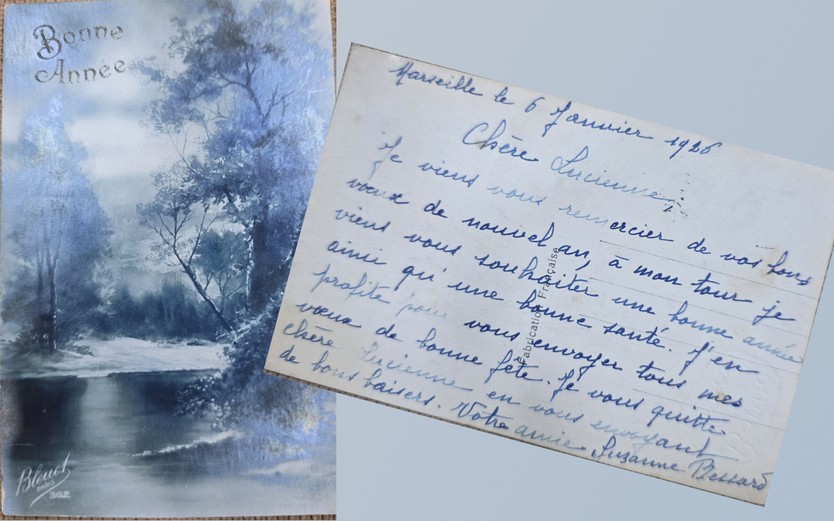 Bonne
Année
Bleuet
PARIS
302
Marseille le 6 Janvier 1926
Chère Lucienne,
Je viens vous remercier de vos bons
vœux de nouvel an, à mon tour je
viens vous souhaiter une bonne année
ainsi qu'une bonne santé. J'en
profite pour vous envoyer tous mes
vœux de bonne fête. Je vous quitte
chère Lucienne en vous envoyant
de bons baisers. Votre amie Suzanne Bessard
Fabrication Française